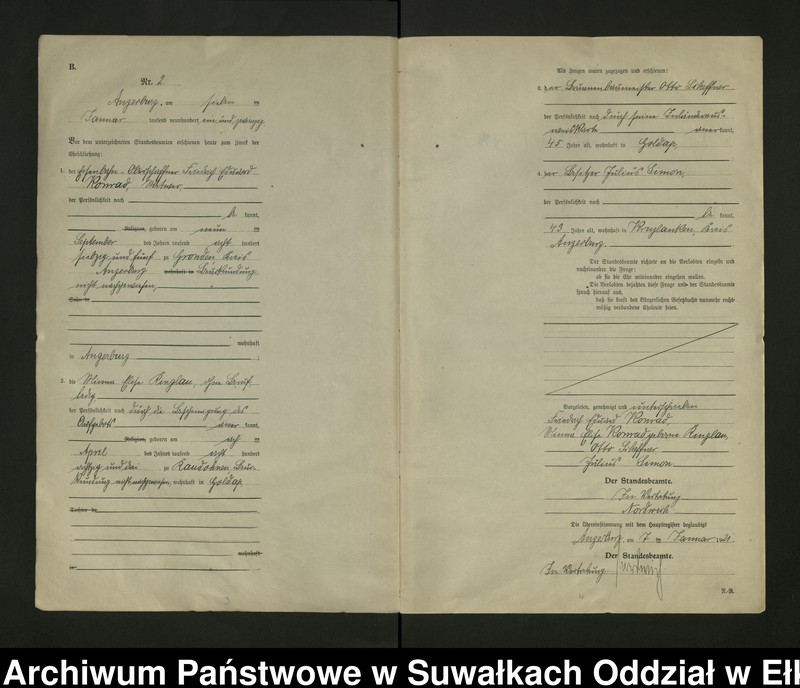 B.
Nr. 2
Angerburg, am sieben ten
Januar tausend neunhundert ein und zwanzig
Vor dem unterzeichneten Standesbeamten erschienen heute zum Zweck der
Eheschließung:
1. der Eisenbahn-Oberschaffner Friedrich Eduard
Konrad, Witwer,
der Persönlichkeit nach
be kannt,
Religion, geboren am neun ten
September des Jahres tausend acht hundert
siebzig und fünf zu Gronden Kreis
Angerburg wohnhaft in Beurkundung
nicht nachgewiesen,
Sohn de
wohnhaft
in Angerburg ;
2. die Minna Elise Ringlau, ohne Beruf
ledig
der Persönlichkeit nach durch die Bescheinigung des
Aufgebots aner kannt,
Religion, geboren am ach ten
April des Jahres tausend acht hundert
achtzig und drei zu Beur-
kundung nicht nachgewiesen, wohnhaft in Goldap
Tochter de
wohnhaft
in
Als Zeugen waren zugezogen und erschienen:
3. der Brunnenbaumeister Otto Scheffner
der Persönlichkeit nach durch seine Inländeraus-
weiskarte aner kannt,
45 Jahre alt, wohnhaft in Goldap,
4. der Besitzer Julius Simon,
der Persönlichkeit nach
be kannt,
49 Jahre alt, wohnhaft in Kruglanken, Kreis
Angerburg.
Der Standesbeamte richtete an die Verlobten einzeln und
nacheinander die Frage:
ob sie die Ehe miteinander eingehen wollen.
Die Verlobten bejahten diese Frage und der Standesbeamte
sprach hierauf aus,
daß sie kraft des Bürgerlichen Gesetzbuchs nunmehr recht-
mäßig verbundene Eheleute seien.
Vorgelesen, genehmigt und unterschrieben
Friedrich Eduard Konrad,
Minna Elise Konrad geborene Ringlau,
Otto Scheffner
Julius Simon
Der Standesbeamte.
In Vertretung
Die Übereinstimmung mit dem Hauptregister beglaubigt
Angerburg, am 7 ten Januar 1921
Der Standesbeamte.
In Vertretung
Archiwum Państwowe w Suwałkach Oddział w Ełk